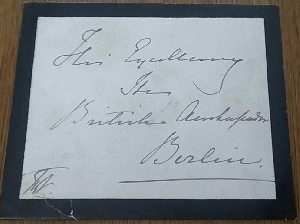 His Excellency
The
British Ambassador
Berlin.